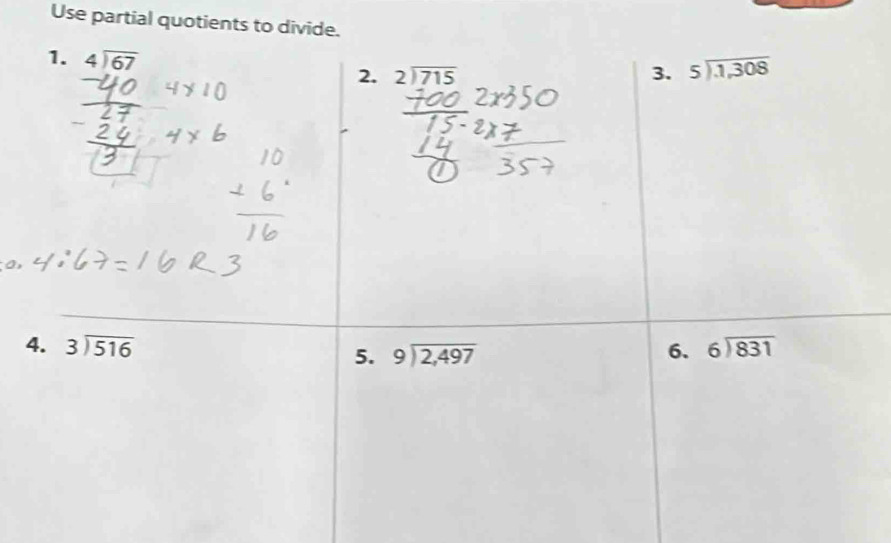 Use partial quotients to divide.
1. 4)67
-40 4×10
27
- 24 4×6
3
10
+ 6
16
4:67=16 R 3
2. 2)715
700 2x350
15 - 2x7
14
1 357
3. 5)1,308
4. 3)516
5. 9)2,497
6. 6)831